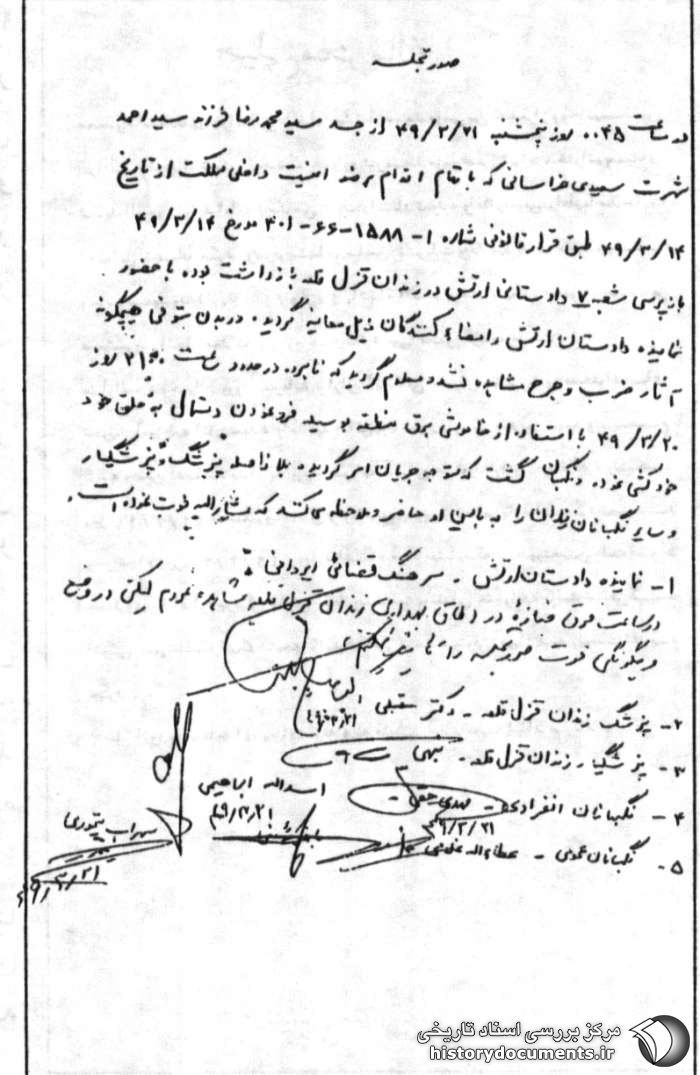 صورتجلسه
در ساعت ۰۰۴۵ روز پنجشنبه ۴۹/۳/۲۱ از جسد سید محمد رضا فرزند سید احمد
شهرت سعیدی خراسانی که باتهام اقدام برضد امنیت داخلی مملکت از تاریخ
۴۹/۳/۱۴ طبق قرار قانونی شماره ۱- ۱۵۸۸-۶۶-۴۰۱ مورخ ۴۹/۳/۱۴
بازپرسی شعبه ۷ دادستانی ارتش در زندان قزل قلعه بازداشت بوده با حضور
نماینده دادستان ارتش و امضاء کنندگان ذیل معاینه گردید. در بدن متوفی هیچگونه
آثار ضرب و جرح مشاهده نشد و معلوم گردید که نامبرده در حدود ساعت ۲۱۰۰ روز
۴۹/۳/۲۰ با استفاده از خاموشی برق منطقه بوسیله فرو نمودن دستمال به حلق خود
خودکشی نموده و نگهبان گشت که متوجه جریان امر گردیده بلافاصله پزشک و پزشکیار
و سایر نگهبانان زندان را به بالین او حاضر و ملاحظه می‌کنند که مشارالیه فوت نموده است.
۱- نماینده دادستان ارتش - سرهنگ قضائی
در ساعت فوق جنازه در اطاق بهداری زندان قزل قلعه مشاهده نمودم لیکن در وضع
و چگونگی فوت صورتجلسه را
۴۹/۳/۲۱
۲- پزشک زندان قزل قلعه - دکتر
۳- پزشکیار زندان قزل قلعه -
اسداله ابراهیمی
۴۹/۳/۲۱
۴- نگهبانان انفرادی -
۴۹/۳/۲۱
سهراب
۴۹/۳/۲۱
۵- نگهبانان عمومی - عطاءاله
مرکز بررسی اسناد تاریخی
historydocuments.ir